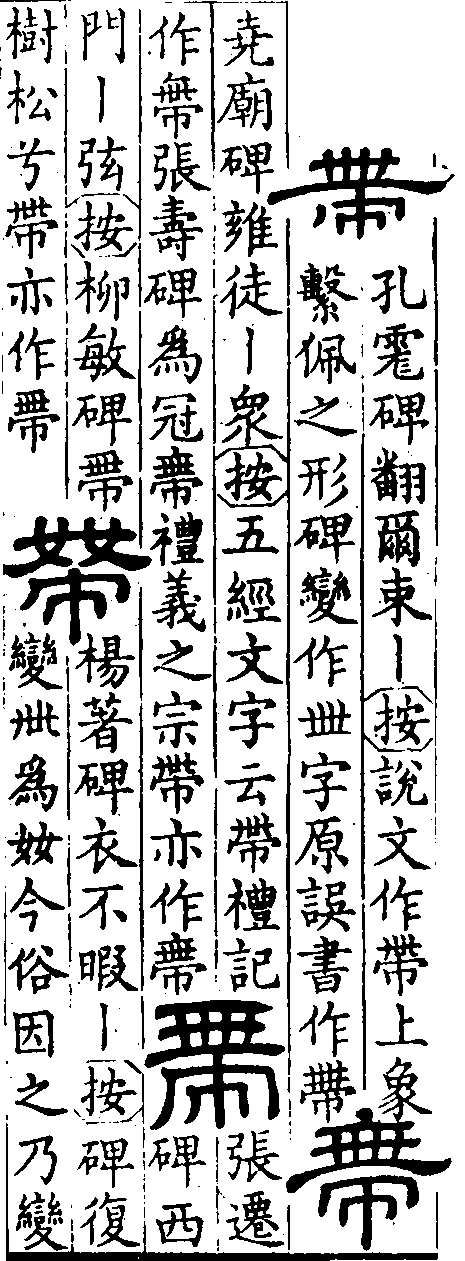 帶
孔碑翻爾束丨按說文作帶上象
繫佩之形碑變作丗字原誤書作帶
帶
堯廟碑雍徒丨衆按五經文字云帶禮記
作帶張壽碑爲冠帶禮義之宗帶亦作帶
帶
張遷
碑西
門丨弦按柳敏碑帶
樹松兮帶亦作帶
帶
楊著碑衣不暇丨按碑復
變卅爲㚣今俗因之乃變